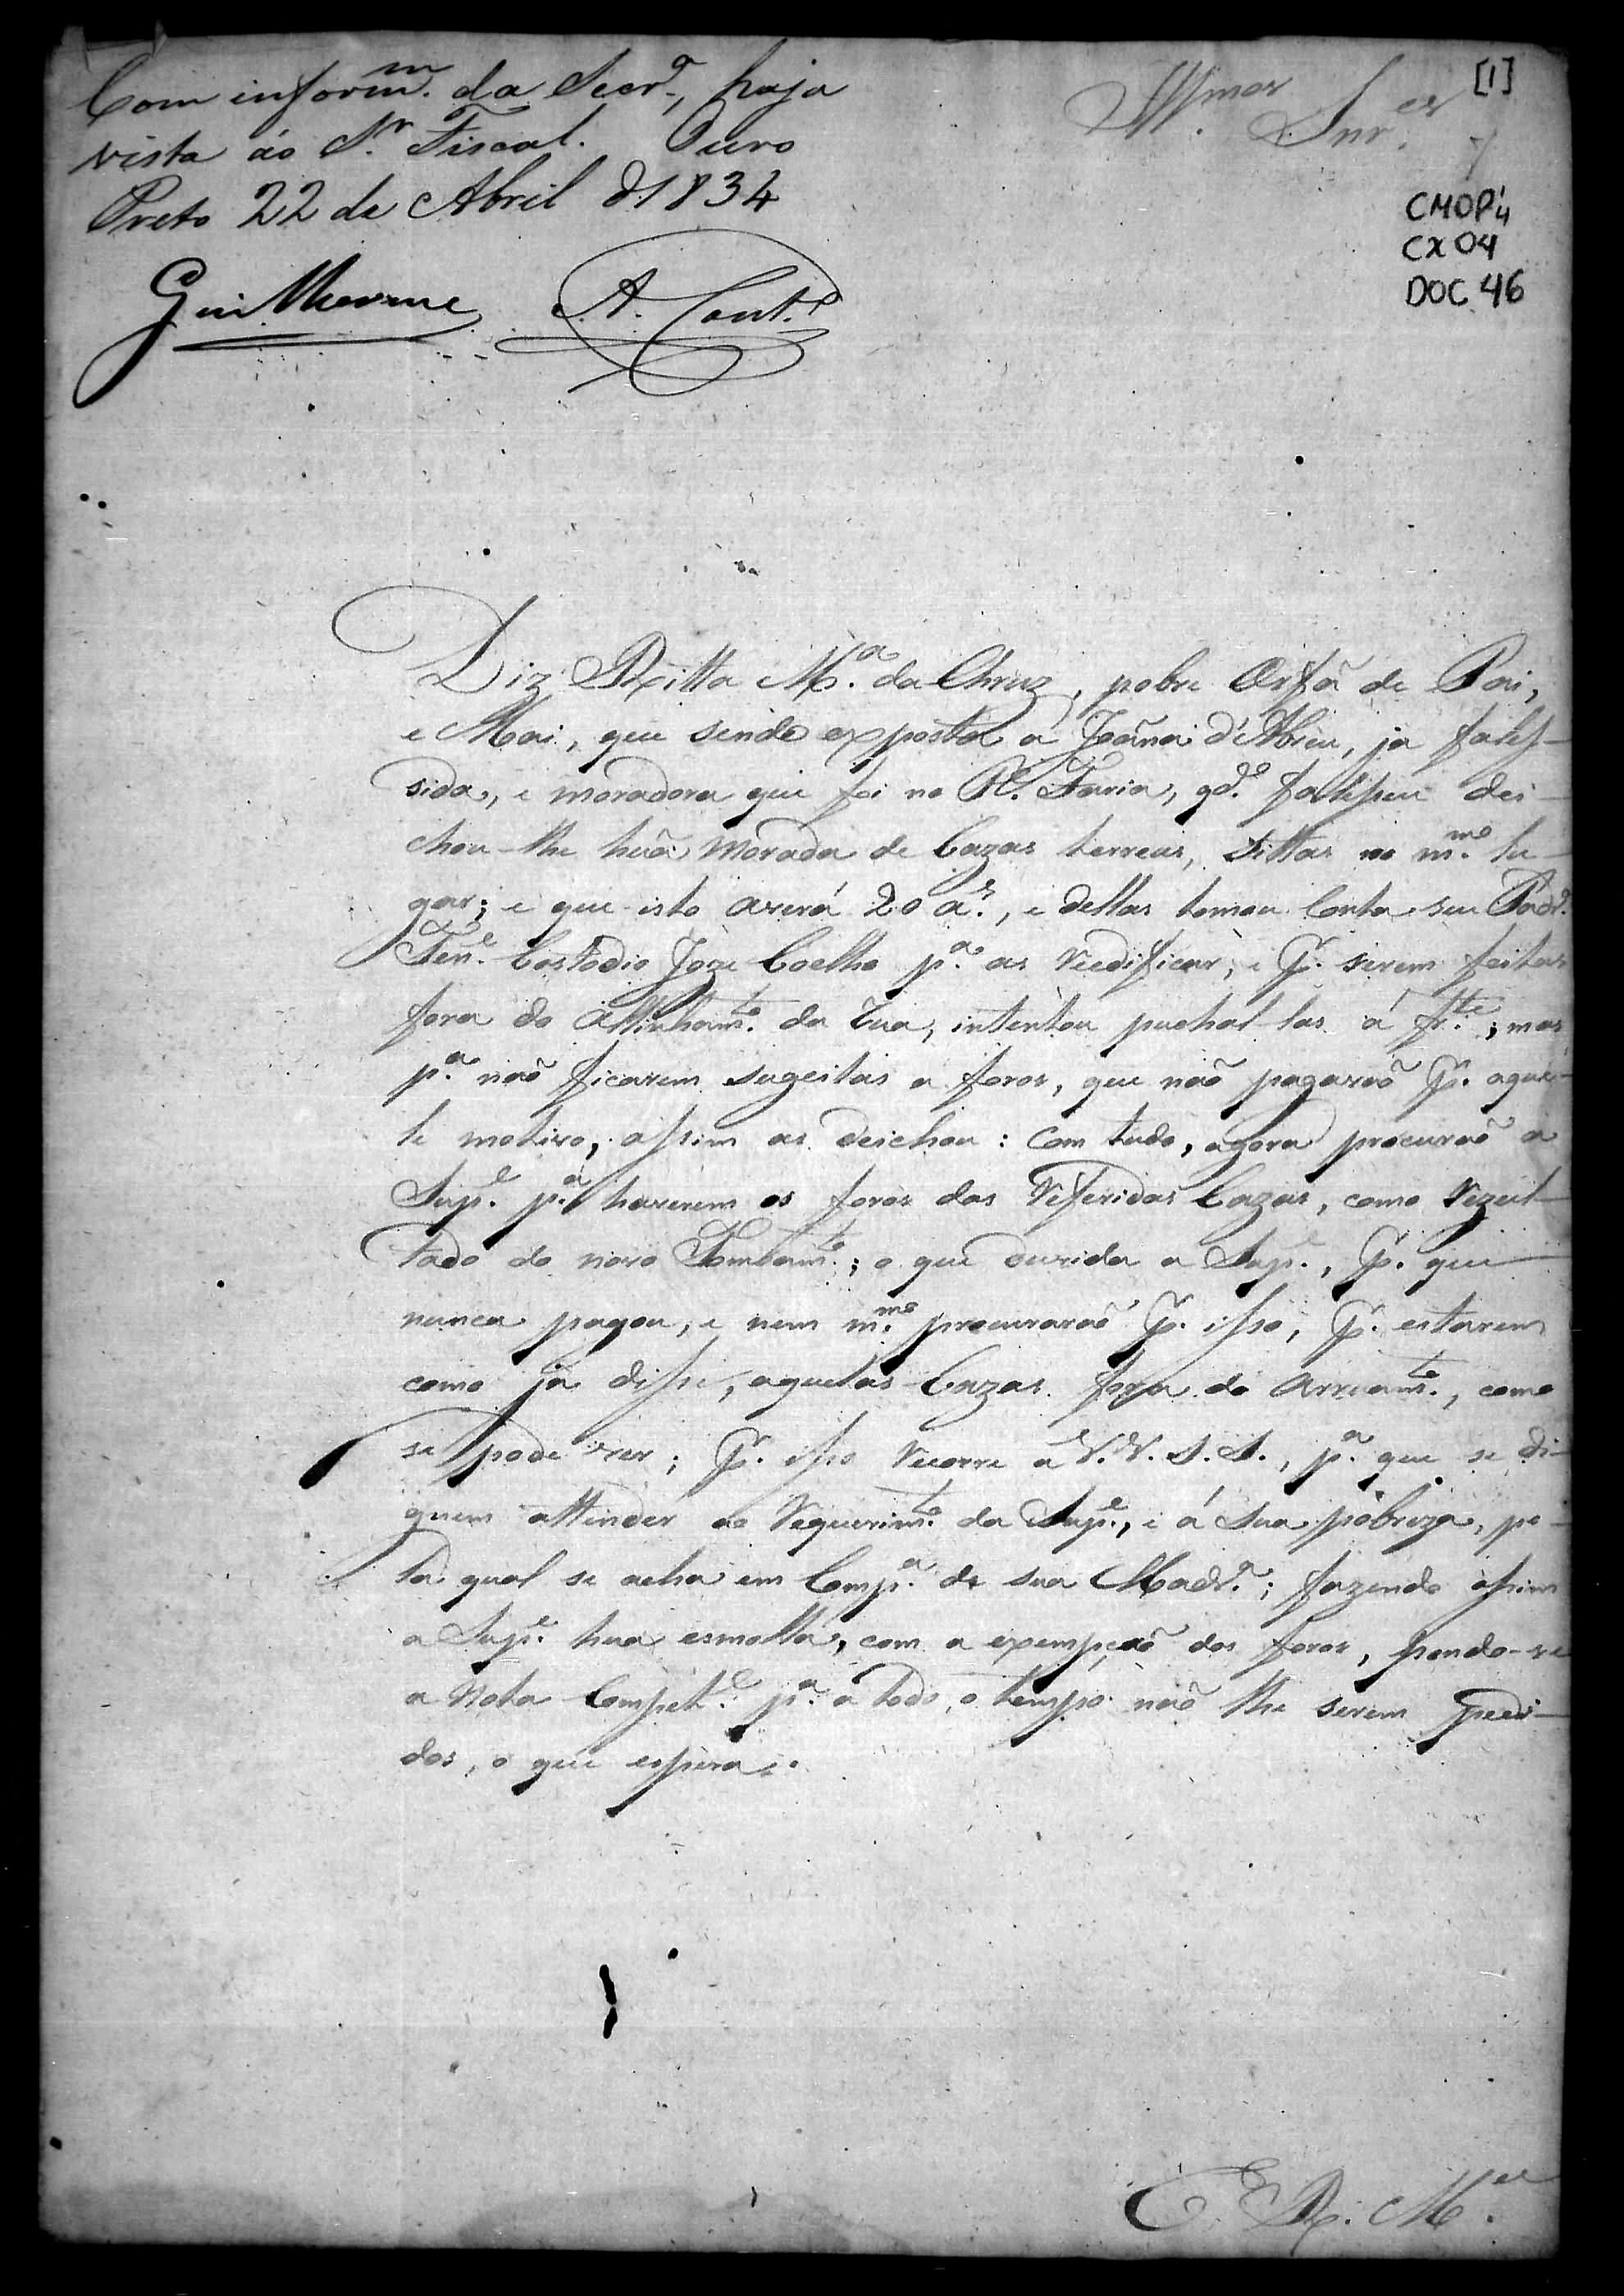 Com inform.m da Secr.a, haja
vista áo S.r Fiscal. Ouro
Preto 22 de Abril d1834
Guilherme A. Cont.o
Illmos Snr.es
[1]
CMOP 4
CX 04
DOC 46
Diz Ritta M.a da Chruz, pobre Orfã de Pai,
e Mai, que sendo exposta a Joãna d'Abreu, ja falef-
sida, e moradora que foi no P.e Faria, qd.o falesseu dei-
chou-lhe huã morada de Cazas terreas, Sittas no m.mo lu-
gar; e que isto averá 20 a.s, e dellas tomou Conta seu Padr.o
Ten.e Costodio Joze Coelho p.a as reedificar, e p.r serem feitas
fora do Allinham.to da rua, intentou puchal-las á fr.te; mas
p.a naõ ficarem sugeitas a foros, que não pagavaõ p.r aque-
le motivo, assim as deichou: Com tudo, agora procuraõ a
Sup.e p.a haverem os foros das referidas Cazas, como rezul-
tado do novo Tombam.to; o que duvida a Sup.e, p.r que
nunca pagou, e nem m.mo procuraraõ p.r isso, p.r estarem
como já disse, aquelas Cazas fora do Arruam.to, como
se pode ver; p.r isso recorre a V.V. S.S., p.a que se di-
gnem attender ao requerim.to da Sup.e, e á sua pobreza, pe-
la qual se acha em Comp.a de sua Madr.a; fazendo assim
a Sup.e hua esmolla, com a exempçaõ dos foros, pondo-se
a Nota Compet.e p.a a todo o tempo naõ lhe serem pedi-
dos, o que espera
E. R. M.ce